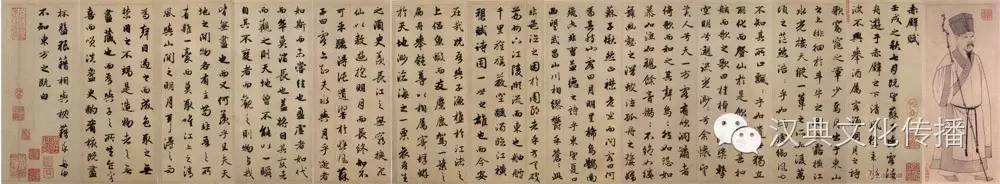 赤壁賦
壬戌之秋七月既望蘇子與客泛
舟遊于赤壁之下清風徐來水
波不興舉酒屬客誦明月之詩
歌窈窕之章少焉月出於東山
之上徘徊於斗牛之間白露橫江
水光接天縱一葦之所如凌萬頃
之茫然浩浩乎如馮虛御風而
不知其所止飄飄乎如遺世獨立
羽化而登仙於是飲酒樂甚扣
舷而歌之歌曰桂棹兮蘭槳擊
空明兮泝流光渺渺兮余懷望
美人兮天一方客有吹洞簫者
倚歌而和之其聲嗚嗚然如怨如
慕如泣如訴餘音嫋嫋不絕如縷
舞幽壑之潛蛟泣孤舟之嫠婦
蘇子愀然正襟危坐而問客曰何
為其然也客曰月明星稀烏鵲南
飛此非曹孟德之詩乎西望夏口
東望武昌山川相繆鬱乎蒼蒼此
非孟德之困於周郎者乎方其破
荊州下江陵順流而東也舳艫
千里旌旗蔽空釃酒臨江橫
槊賦詩固一世之雄也而今安
在哉況吾與子漁樵於江渚之
上侶魚蝦而友麋鹿駕一葉之
扁舟舉匏樽以相屬寄蜉蝣
於天地渺滄海之一粟哀吾生
之須臾羨長江之無窮挾飛
仙以遨遊抱明月而長終知不
可乎驟得託遺響於悲風蘇
子曰客亦知夫水與月乎逝者
如斯而未嘗往也盈虛者如代
而卒莫消長也蓋將自其變者
觀之則天地曾不能以一瞬
自其不變者而觀之則物與我
皆無盡也而又何羨乎且夫天
地之間物各有主苟非吾之所
有雖一毫而莫取惟江上之清
風與山間之明月耳得之而
為聲目遇之而成色取之無
禁用之不竭是造物者之無
盡藏也而吾與子之所共食客
喜而笑洗盞更酌肴核既盡
杯盤狼藉相與枕藉乎舟中
不知東方之既白
汉典文化传播